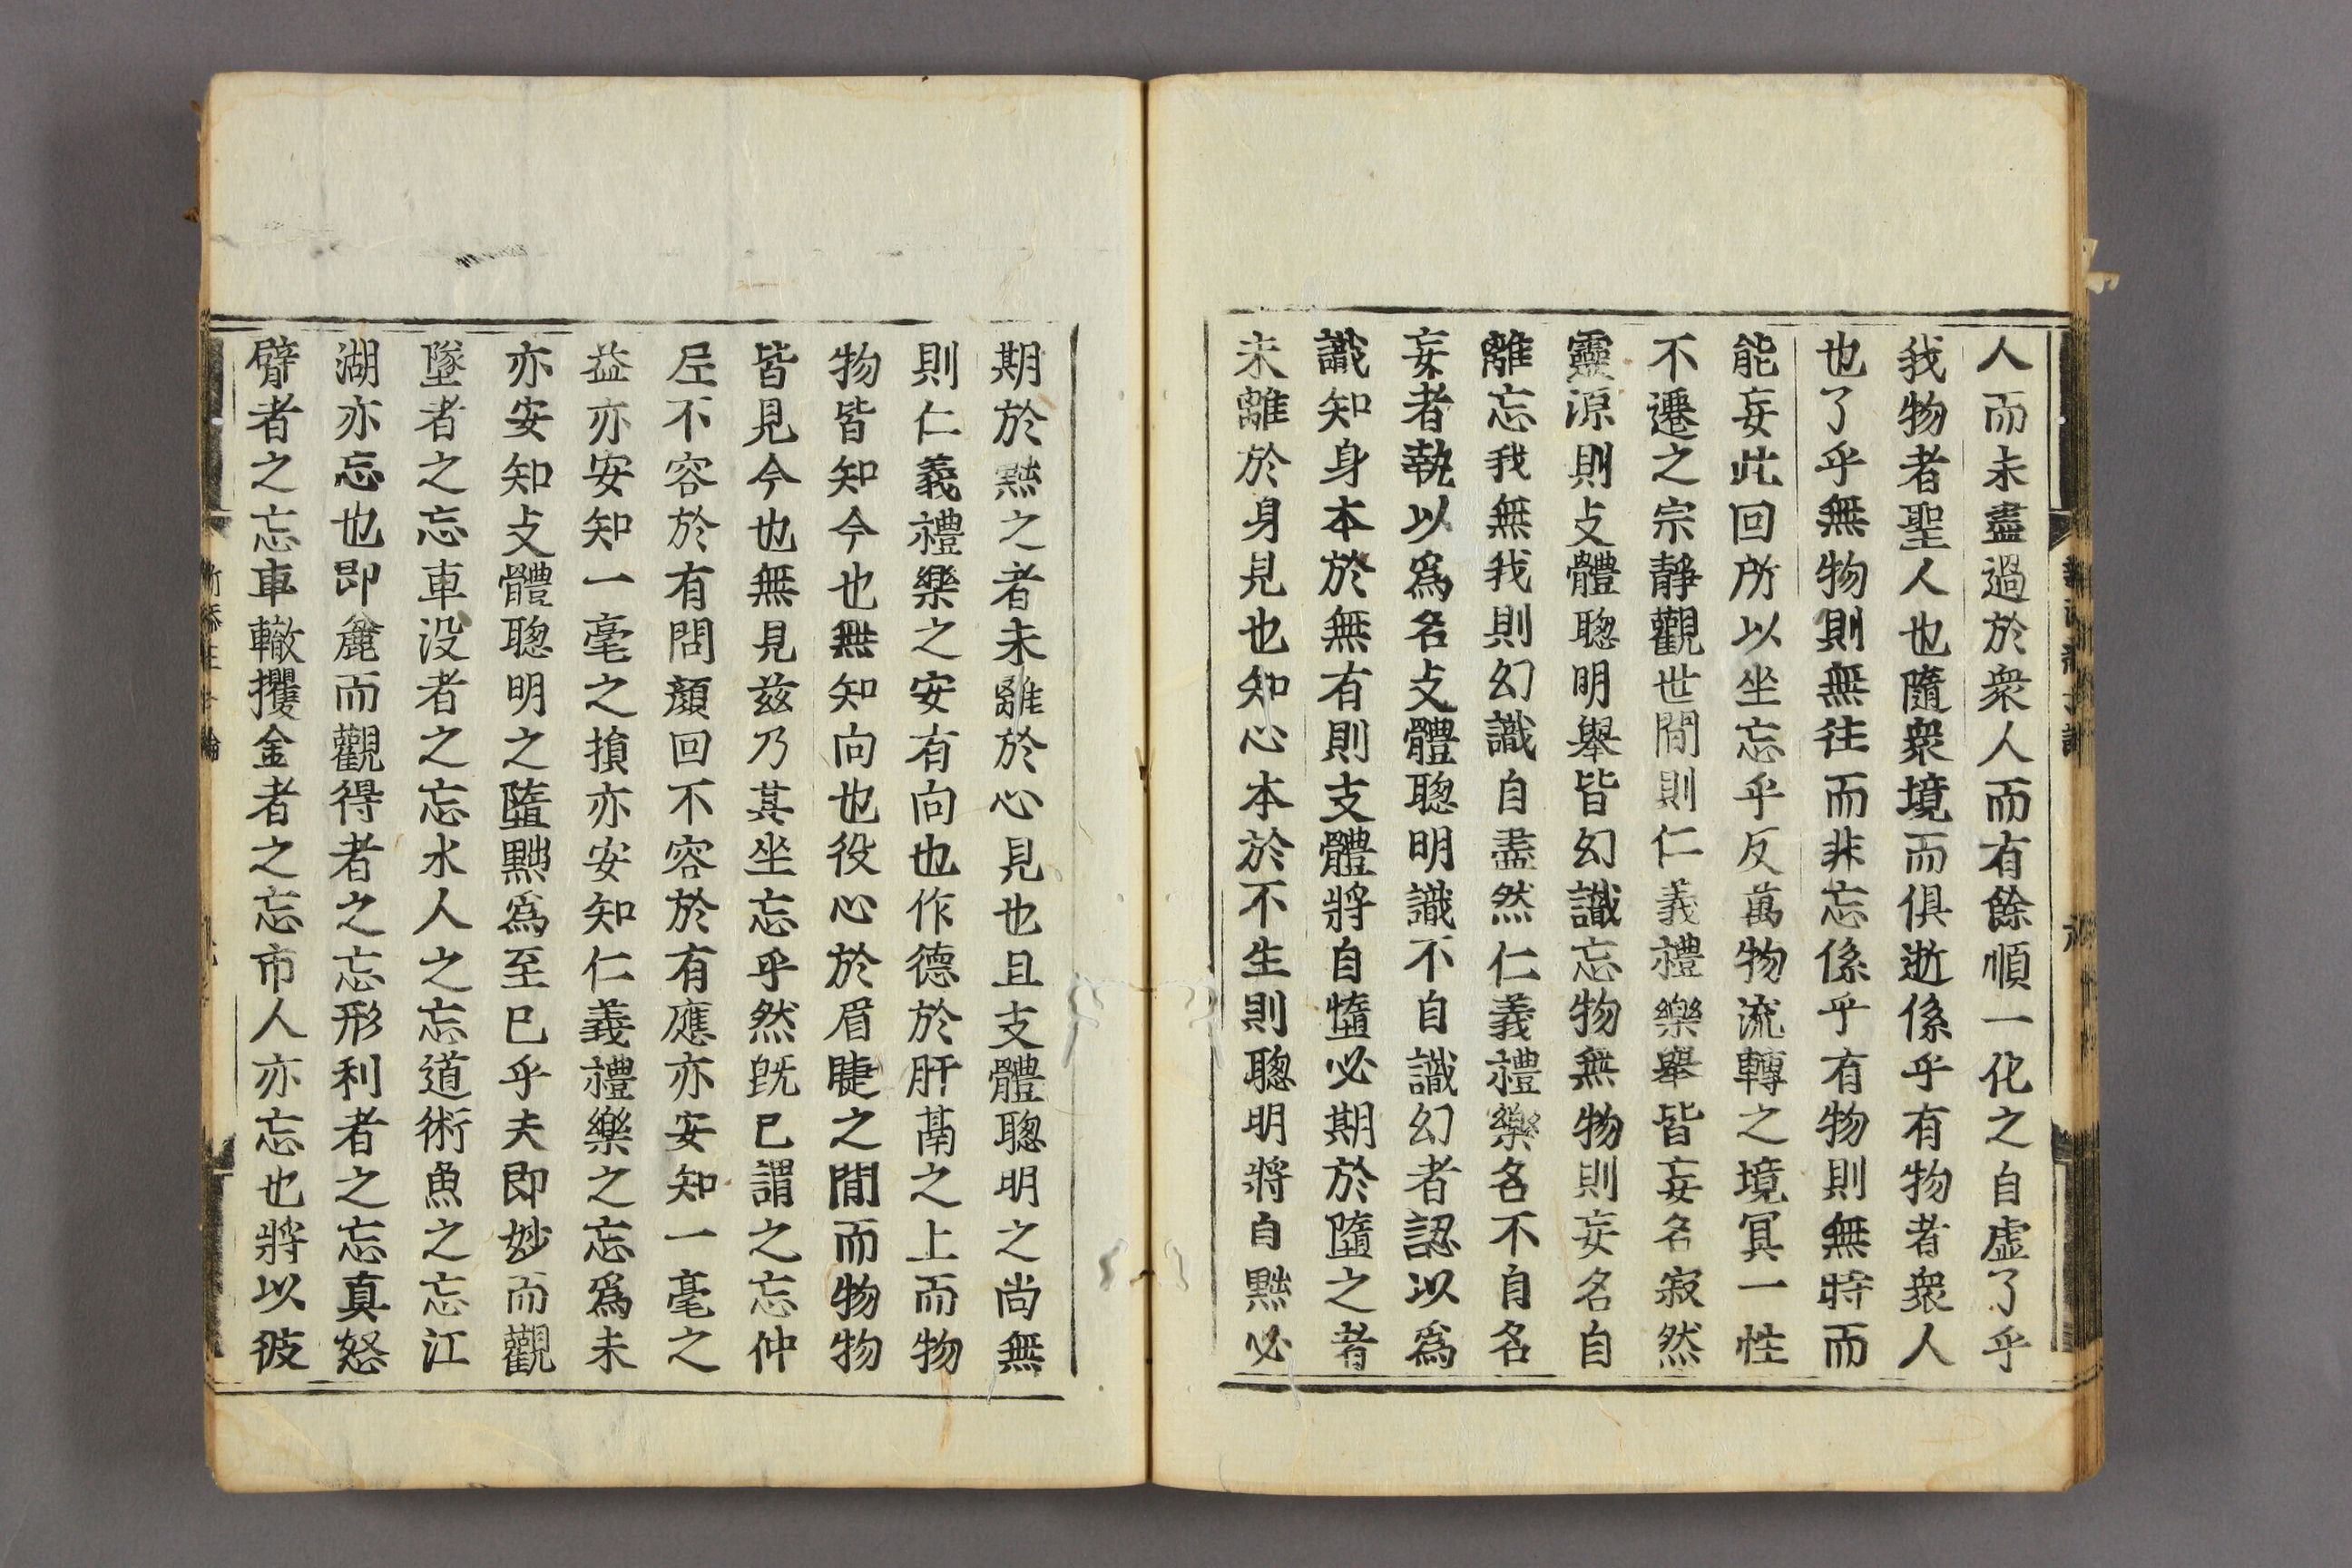 人而未盡過於衆人而有餘順一化之自虛了乎
我物者聖人也隨衆境而俱逝係乎有物者衆人
也了乎無物則無往而非忘係乎有物則無時而
能妄此回所以坐忘乎反萬物流轉之境冥一性
不遷之宗靜觀世間則仁義禮樂舉皆妄名寂然
靈源則攴體聰明舉皆幻識忘物無物則妄名自
離忘我無我則幻識自盡然仁義禮樂名不自名
妄者執以爲名攴體聰明識不自識幻者認以爲
識知身本於無有則支體將自墮必期於隳之者
未離於身見也知心本於不生則聰明將自黜必
期於黜之者未離於心見也且支體聰明之尚無
則仁義禮樂之安有向也作德於肝鬲之上而物
物皆知今也無知向也役心於眉睫之間而物物
皆見今也無見兹乃其坐忘乎然旣已謂之忘仲
尼不容於有問顏回不容於有應亦安知一毫之
益亦安知一毫之損亦安知仁義禮樂之忘爲未
亦安知攴體聰明之墮黜爲至已乎夫即妙而觀
墜者之忘車沒者之忘水人之忘道術魚之忘江
湖亦忘也即麄而觀得者之忘形利者之忘真怒
臂者之忘車轍攫金者之忘市人亦忘也將以彼